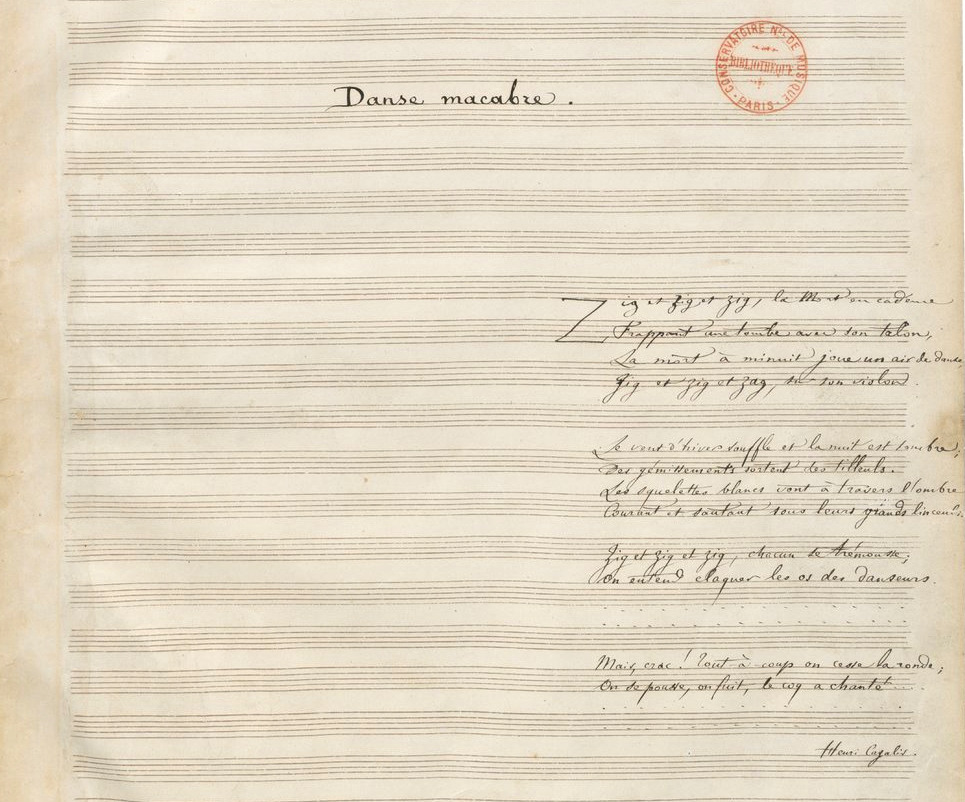 Danse macabre.
CONSERVATOIRE NAL DE MUSIQUE
BIBLIOTHÈQUE
PARIS
Zig et zig et zig, la Mort en cadence
Frappant une tombe avec son talon,
La mort à minuit joue un air de danse,
Zig et zig et zag, sur son violon.
Le vent d'hiver souffle et la nuit est sombre;
Des gémissements sortent des tilleuls.
Les squelettes blancs vont à travers l'ombre
Courant et sautant sous leurs grands linceuls.
Zig et zig et zig, chacun se trémousse;
On entend claquer les os des danseurs.
Mais, crac! Tout-à-coup on cesse la ronde;
On se pousse, on fuit, le coq a chanté
Henri Cazalis.